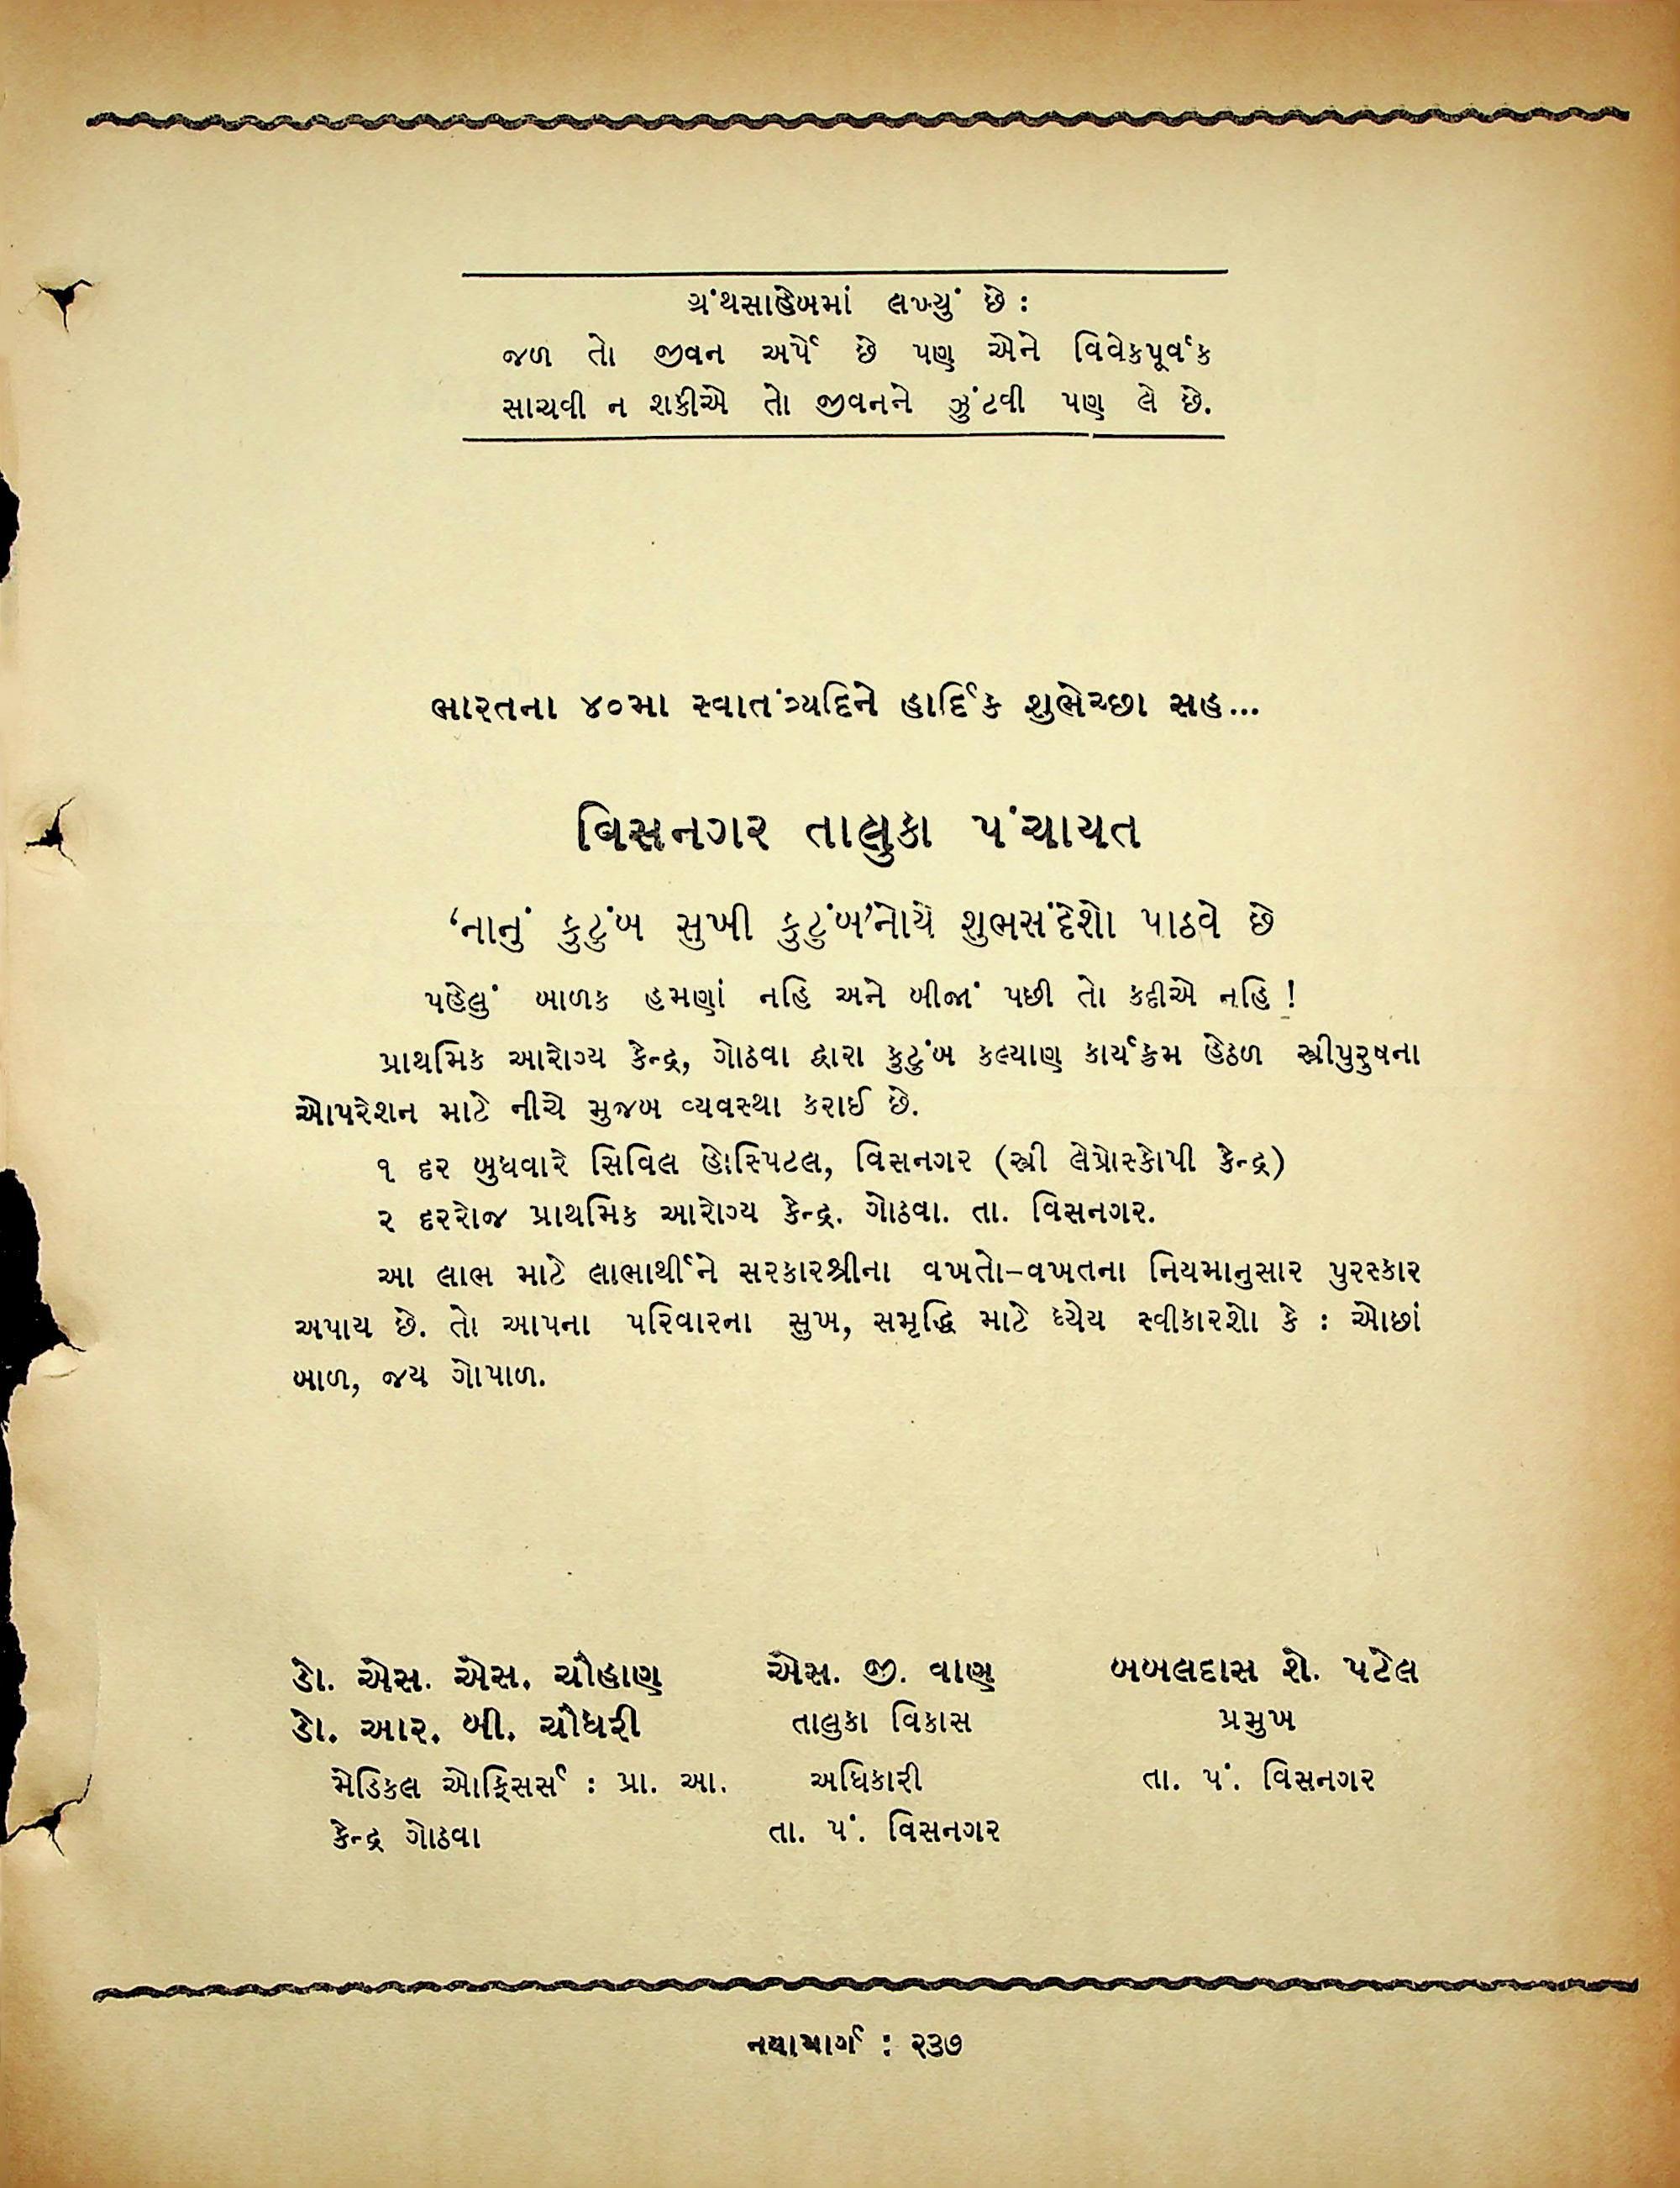 ગ્રંથસાહેબમાં લખ્યું છે :
જળ તો જીવન અર્પે છે પણ એને વિવેકપૂર્વક
સાચવી ન શકીએ તો જીવનને ઝુંટવી પણ લે છે.
ભારતના ૪૦મા સ્વાતંત્ર્યદિને હાર્દિક શુભેચ્છા સહ...
વિસનગર તાલુકા પંચાયત
‘નાનું કુટુંબ સુખી કુટુંબ’નોયે શુભસંદેશો પાઠવે છે
પહેલું બાળક હમણાં નહિ અને બીજાં પછી તો કદીએ નહિ !
પ્રાથમિક આરોગ્ય કેન્દ્ર, ગોઠવા દ્વારા કુટુંબ કલ્યાણ કાર્યક્રમ હેઠળ સ્ત્રીપુરુષના
ઓપરેશન માટે નીચે મુજબ વ્યવસ્થા કરાઈ છે.
૧ દર બુધવારે સિવિલ હોસ્પિટલ, વિસનગર (સ્ત્રી લેપ્રોસ્કોપી કેન્દ્ર)
૨ દરરોજ પ્રાથમિક આરોગ્ય કેન્દ્ર. ગોઠવા. તા. વિસનગર.
આ લાભ માટે લાભાર્થીને સરકારશ્રીના વખતો-વખતના નિયમાનુસાર પુરસ્કાર
અપાય છે. તો આપના પરિવારના સુખ, સમૃદ્ધિ માટે ધ્યેય સ્વીકારશો કે : ઓછાં
બાળ, જય ગોપાળ.
ડો. એસ. એસ. ચૌહાણ એસ. જી. વાણ બબલદાસ શે. પટેલ
ડો. આર. બી. ચૌધરી તાલુકા વિકાસ પ્રમુખ
મેડિકલ ઓફિસર્સ : પ્રા. આ. અધિકારી તા. પં. વિસનગર
કેન્દ્ર ગોઠવા તા. પં. વિસનગર
નયામાર્ગ : ૨૩૭